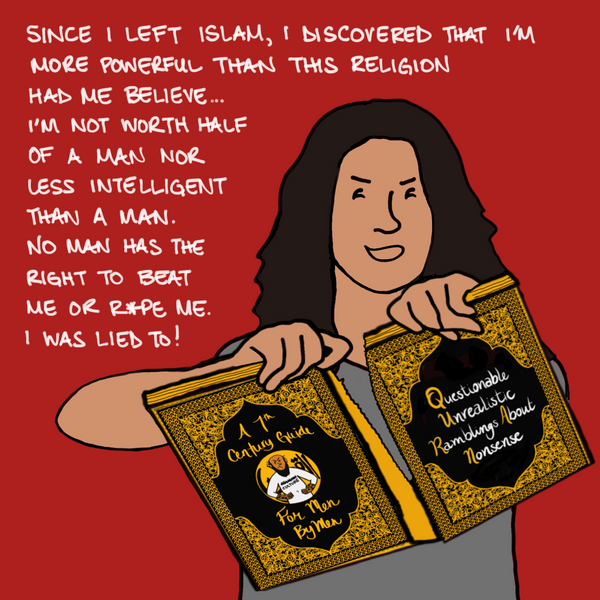 SINCE I LEFT ISLAM, I DISCOVERED THAT I'M
MORE POWERFUL THAN THIS RELIGION
HAD ME BELIEVE...
I'M NOT WORTH HALF
OF A MAN NOR
LESS INTELLIGENT
THAN A MAN.
NO MAN HAS THE
RIGHT TO BEAT
ME OR R*PE ME.
I WAS LIED TO!
A 7th
Century Guide
For Men
By Men
Questionable
Unrealistic
Ramblings About
Nonsense